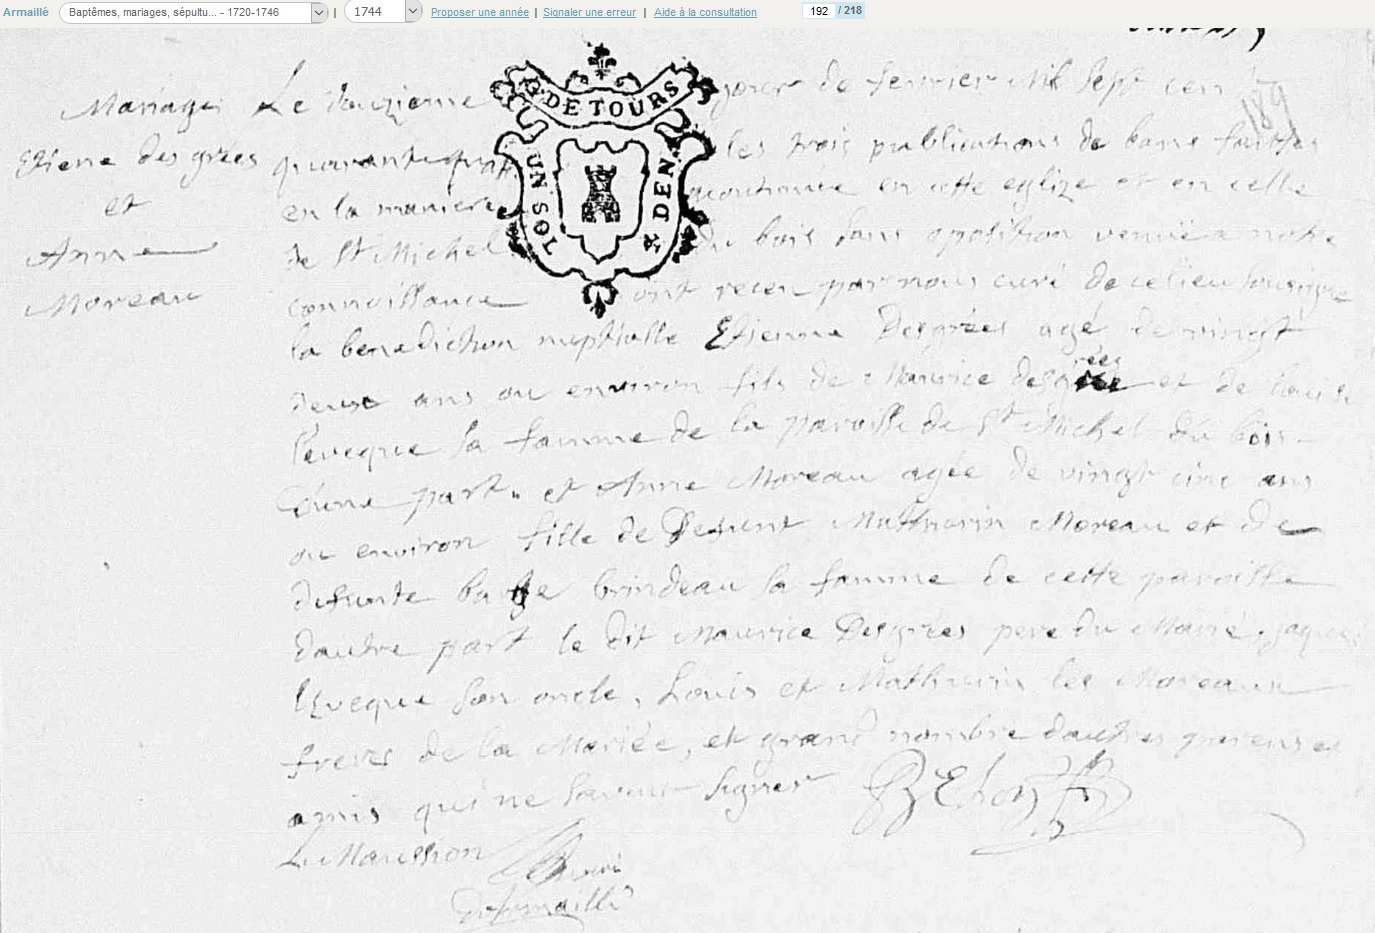 Armaillé Baptêmes, mariages, sépultu... - 1720-1746 | 1744 Proposer une année | Signaler une erreur | Aide à la consultation 192 / 218
G DE TOURS
UN SOL
X DEN.
Mariage
Etiene des grées
et
Anne
Moreau
Le douzieme jour de fevrier Mil Sept cen
quarante quat les trois publications de bans faittes
en la maniere acoutumee en cette eglize et en celle
de St Michel du bois sans opossition venüe a notre
connoissance ont receu par nous curé de ce lieu soussigne
la benediction nuptialle Etienne Desgrées agé de vingt
deux ans ou environ fils de Maurice desgrées et de
l'eveque sa famme de la paroisse de St Michel du bois
d'une part. et Anne Moreau agée de vingt cinc ans
ou environ fille de Defunt Mathurin Moreau et de
defunte brindeau sa famme de cette paroisse
dautre part le dit Maurice Desgrées pere du Marié, jaques
l'Eveque son oncle, Louis et Mathurin les Moreaux
freres de la Mariée, et grand nombre dautres parens et
amis qui ne savent signer